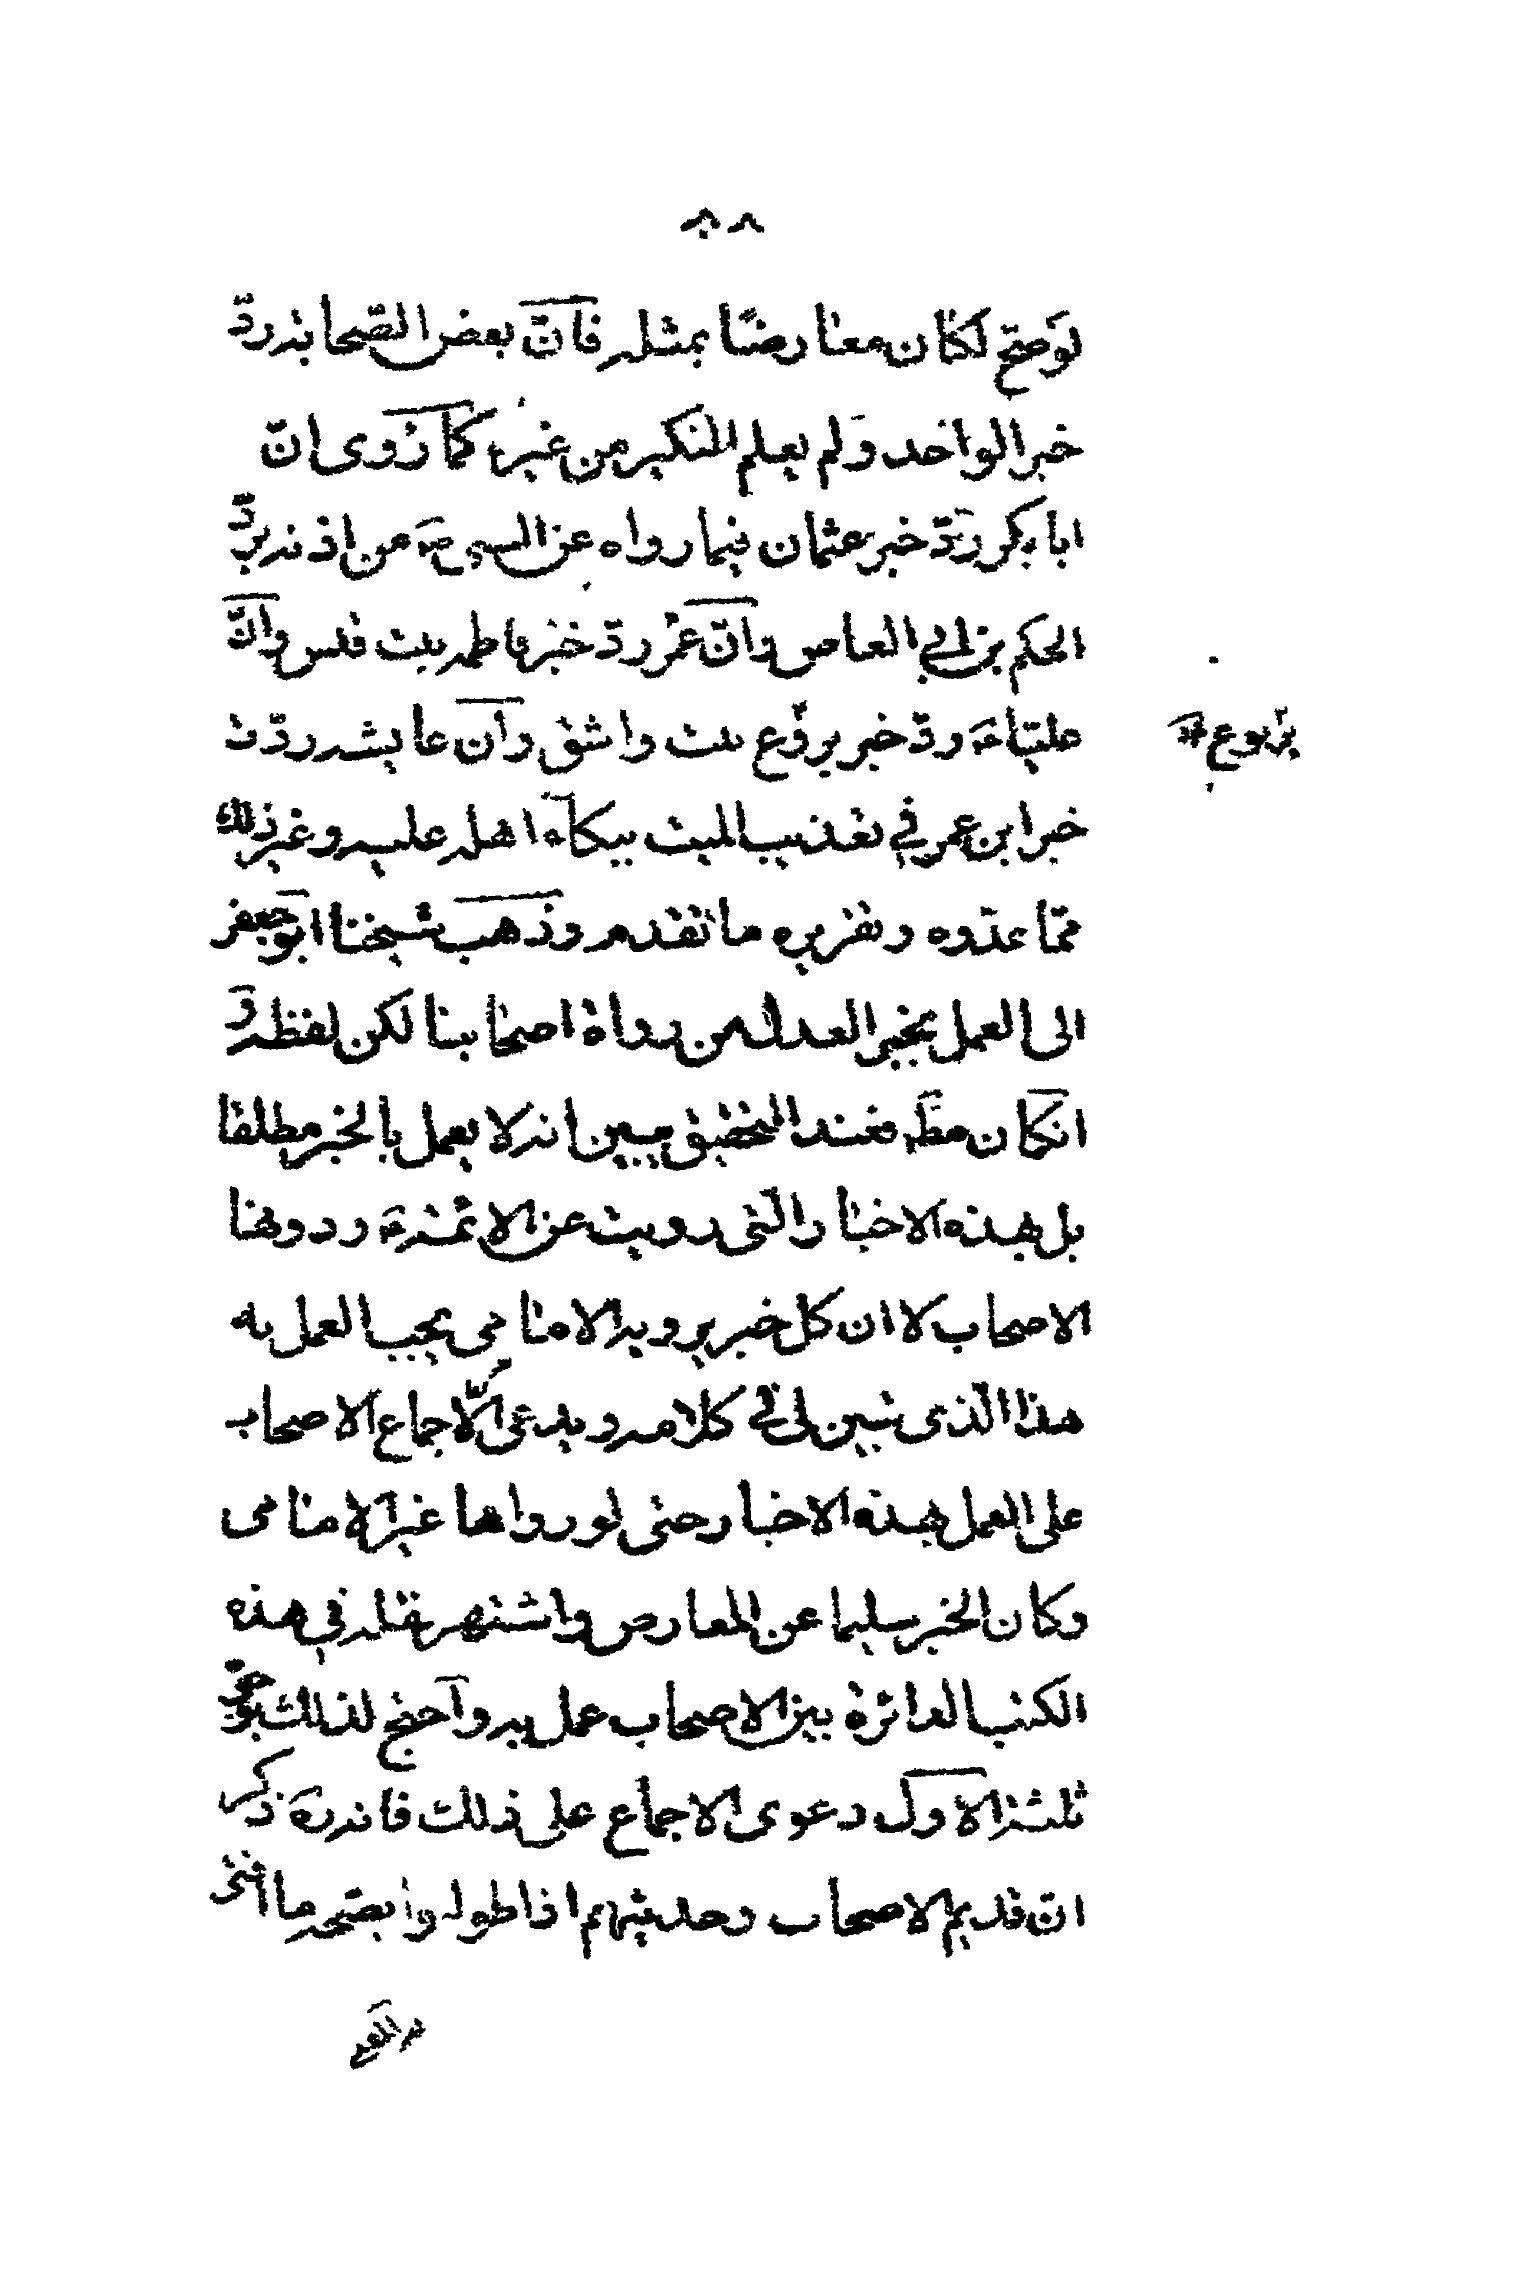 لو صحّ لكان معارضًا بمثله فانّ بعض الصّحابه ردّ
خبر الواحد ولم يعلم النكير من غيره كما رُوى انّ
ابا بكر ردّ خبر عثمان فيما رواه عن النبي ص من اذنه بردّ
الحكم بن ابي العاص وانّ عمر ردّ خبر فاطمه بنت قيس وانّ
عليّا ع ردّ خبر بروّع بنت واشق وان عايشه ردّت
خبر ابن عمر في تعذيب الميت ببكآء اهله عليه وغير ذلك
ممّا عدّوه وتقريره ما تقدم وذهب شيخنا ابو جعفر
الى العمل بخبر العدل من رواة اصحابنا لكن لفظه و
انكان مط فعند التحقيق يبين انه لا يعمل بالخبر مطلقا
بل بهذه الاخبار التى رويت عن الائمه ع ودونها
الاصحاب لا ان كل خبر يرويه الامامى يجب العمل به
هذا الذى تبين لى في كلامه ويدعى الاجماع الاصحاب
على العمل بهذه الاخبار حتى لو رواها غير الامامى
وكان الخبر سليما عن المعارض واشتهر نقله في هذه
الكتب الدائرة بين الاصحاب عمل به واحتج لذلك بوجوه
ثلثة الاول دعوى الاجماع على ذلك فانه ره ذكر
انّ قديم الاصحاب وحديثهم اذا طولبوا بصحّه ما افتى
به المفتى
يرّبوع